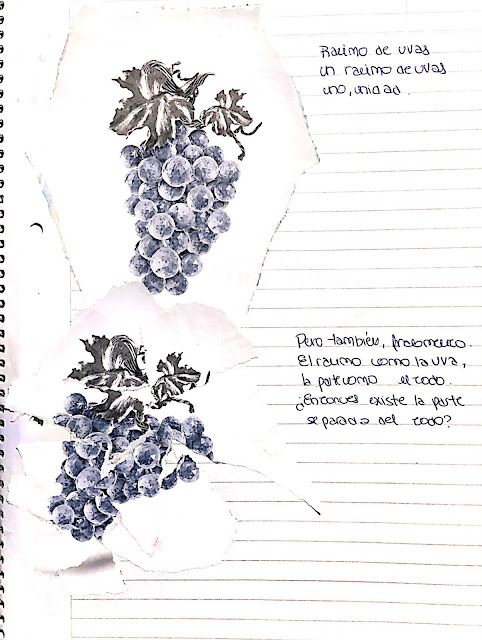 Racimo de uvas
un racimo de uvas
uno, unidad.
Pero también, fraccionario.
El racimo como la uva,
la parte como el todo.
¿Entonces existe la parte
separada del todo?